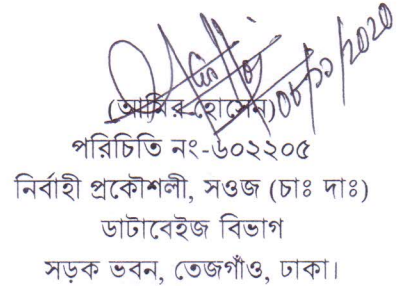 (আমির হোসেন)
পরিচিতি নং-৬০২২০৫
নির্বাহী প্রকৌশলী, সওজ (চাঃ দাঃ)
ডাটাবেইজ বিভাগ
সড়ক ভবন, তেজগাঁও, ঢাকা।